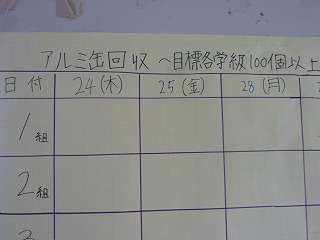 アルミ缶回収 ~目標各学級100個以上
日付 24(木) 25(金) 28(月)
1組
2組